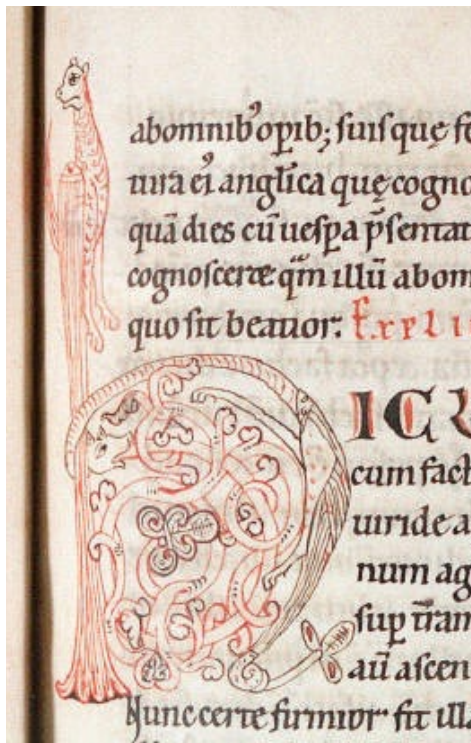 abomnib᾿ opib; suis quę fe
tura ei᾿ anglica quę cogno
quā dies cū uespa p̄sentat
cognoscere qm̄ illū abom
quo sit beatior: Exrl
SICU
cum facb
uiride a
num ag
sup tram
aū ascen
Nunc certe firmior fit illa